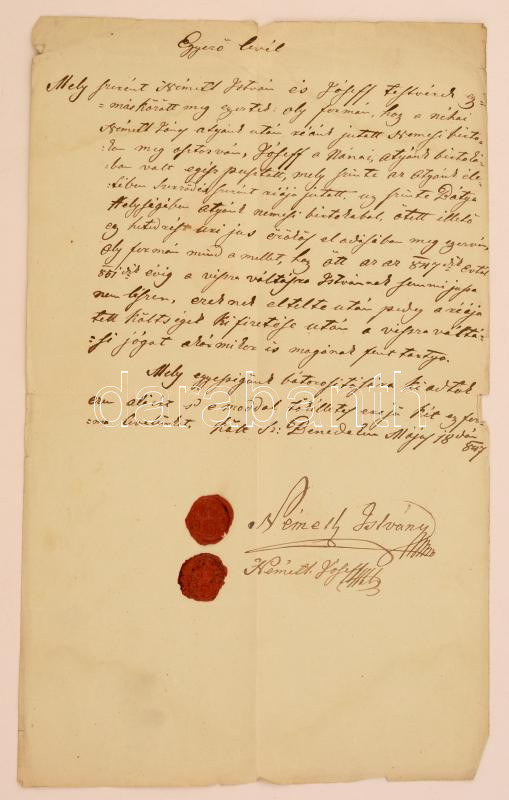 Egyező levél
Mely szerént Németh István és Jósef testvérek egy=
=máskőzőtt meg egyeztek oly formán, hogy a néhai
Németh atyánk után reánk jutott Nemesi birto=
:kon meg osztozván, Jósef a atyánk birtoká=
:ban valt egész pusztább, mely szinte az atyánk éle=
:tében szerént reája jutott, uz szinte Bátya
Helységében atyánk nemesi birtokabol, őtett illető
egy úri jus őrőkős el adásában meg egyezvén,
oly formán mind a mellet, hogy őtt az az 847ik évtől
851ik évig a viszsza váltásra Istvánnak semmi jussa
nem leszen, ezeknek eltelte után pedig a reája
tett kőltségek ki fizetése után a viszsza váltá=
=si jogát akármikor is magának fent tartya.
Mely egyességünk bátorosítására ki adtuk
ezen alá irt s e moddal tőkélletes erejű két egy for=
ma levelünket, Kőlt Sz: Benedeken Május 18dán
847
Németh Istvány
Németh Jósef
darabanth